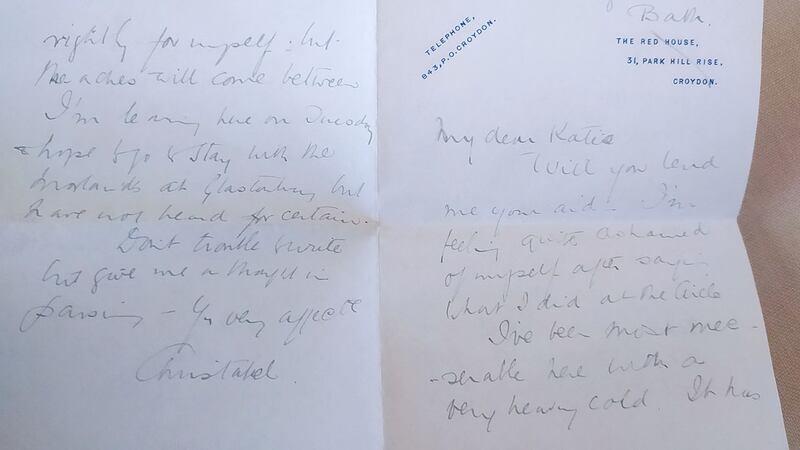 TELEPHONE,
843, P.O. CROYDON.
Bath.
THE RED HOUSE,
31, PARK HILL RISE,
CROYDON.
My dear Katie
Will you lend
me your aid - I'm
feeling quite ashamed
of myself after saying
what I did at the Circle
I've been most mee-
-serable here with a
very heavy cold. It has
rightly for myself: but
the aches will come between
I'm leaving here on Tuesday
& hope to go & stay with the
at Glastonbury but
have not heard for certain.
Don't trouble to write
but give me a thought in
passing - Yr very affecte
Christabel.